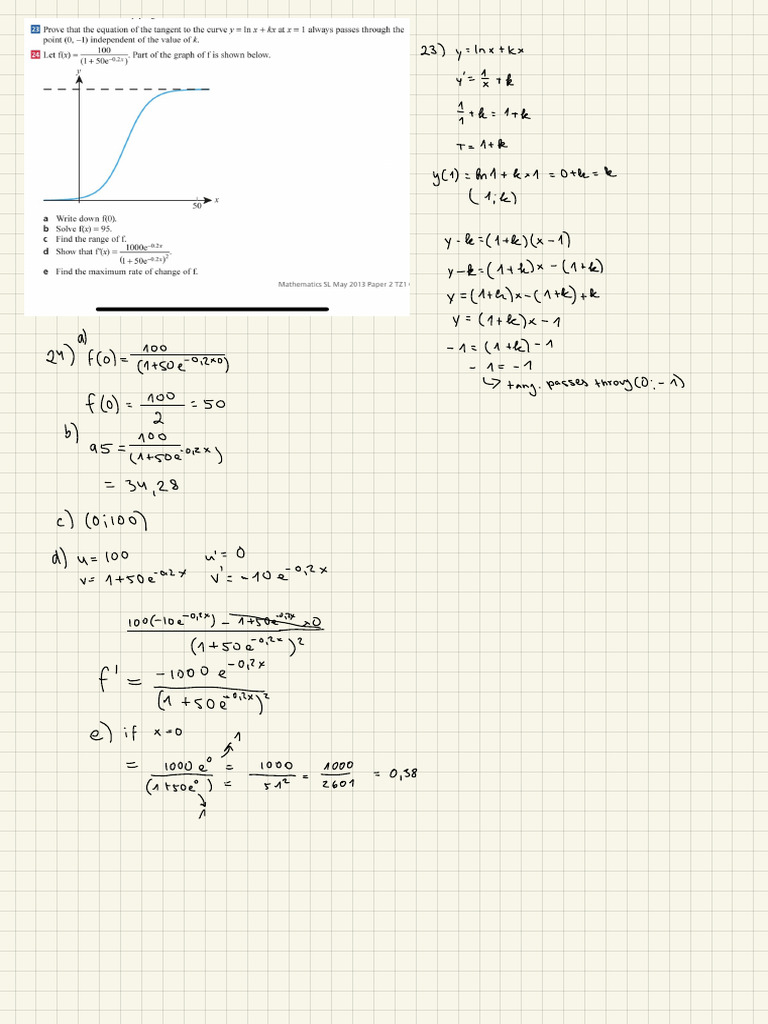 23 Prove that the equation of the tangent to the curve y = ln x + kx at x = 1 always passes through the
point (0, −1) independent of the value of k.
24 Let f(x) = 100/(1 + 50e^−0.2x). Part of the graph of f is shown below.
y
x
50
a Write down f(0).
b Solve f(x) = 95.
c Find the range of f.
d Show that f'(x) = 1000e^−0.2x/(1 + 50e^−0.2x)^2.
e Find the maximum rate of change of f.
Mathematics SL May 2013 Paper 2 TZ1
23) y = lnx + kx
y' = 1/x + k
1/1 + k = 1+k
T = 1+k
y(1) = ln1 + k×1 = 0+k = k
(1;k)
y-k = (1+k)(x-1)
y-k = (1+k)x - (1+k)
y = (1+k)x - (1+k)+k
y = (1+k)x - 1
-1 = (1+k) - 1
-1 = -1
↳ tang. passes throug (0;-1)
24) a) f(0) = 100/(1+50e^-0,2×0)
f(0) = 100/2 = 50
b) 95 = 100/(1+50e^-0,2x)
= 34,28
c) (0;100)
d) u = 100 u' = 0
v = 1+50e^-0.2x v' = -10e^-0,2x
100(-10e^-0,2x) - 1+50e^-0,2x ×0/(1+50e^-0,2x)^2
f' = -1000e^-0,2x/(1+50e^-0,2x)^2
e) if x=0
1
= 1000e^0/(1+50e^0) = 1000/51^2 = 1000/2601 = 0,38
1